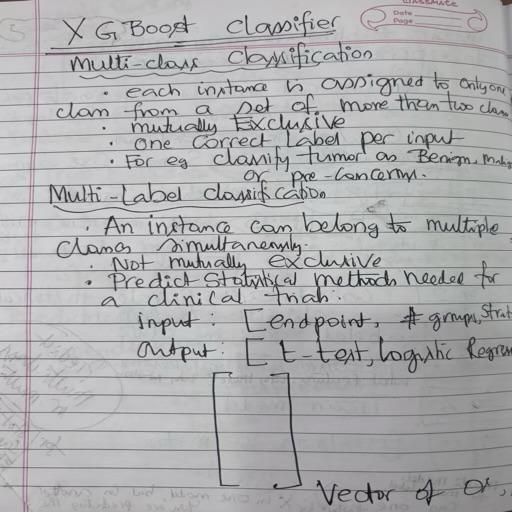 CLASSMATE
Date
Page
XGBoost Classifier
Multi-class Classification
• each instance is assigned to only one
class from a set of more than two class
• mutually Exclusive
• One Correct Label per input
• For eg classify tumor as Benign,
or pre-Cancerns.
Multi-Label Classification
• An instance can belong to multiple
Classes simultaneously.
• Not mutually exclusive
• Predict Statistical methods needed for
a clinical trial.
input: [endpoint, # groups, Strat
Output: [t-test, Logistic Regress
Vector of 0s,